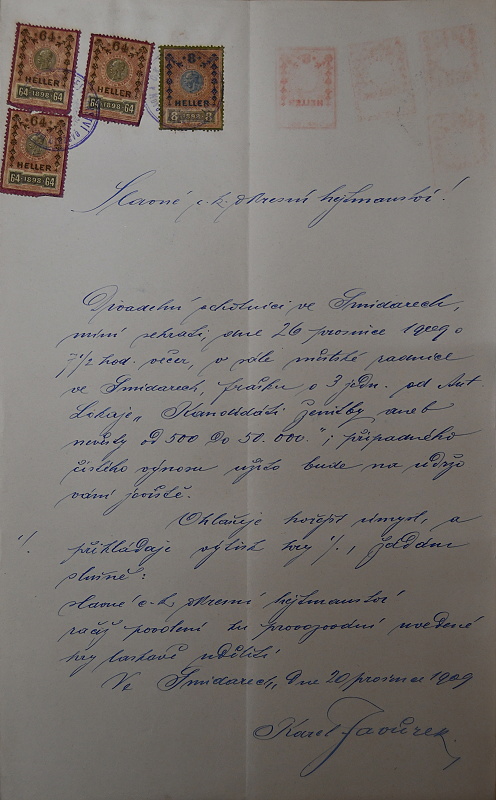 64
HELLER
64 1898 64
64
HELLER
64 1898 64
8
HELLER
8 1898 8
64
HELLER
64 1898 64
Slavné c. k. okresní hejtmanství!
Divadelní ochotníci ve Smidarech,
míní sehráti, dne 26 prosince 1909 o
7 1/2 hod. večer, v sále městské radnice
ve Smidarech, frašku o 3 jedn. od Ant.
Lokaje „Kandidáti ženitby aneb
nevěsty od 500 do 50.000."; případného
čistého výnosu užito bude na udržo
vání jeviště.
Ohlašuje hořejší úmysl, a
1/. přikládaje výtisk hry 1/., žádám
slušně:
slavné c. k. okresní hejtmanství
račiž povolení ku provozování uvedené
hry laskavě uděliti
Ve Smidarech, dne 20 prosince 1909
Karel Javůrek